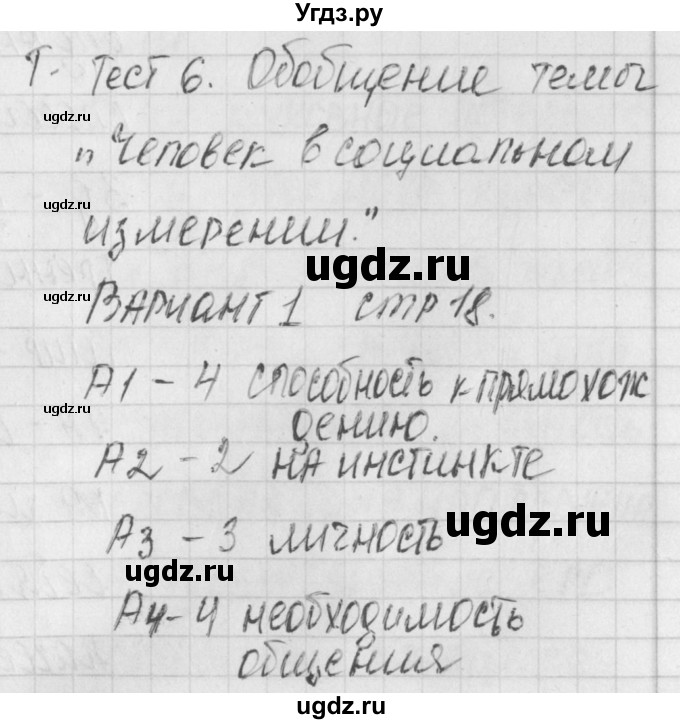 Угдз.ру
Т. Тест 6. Обобщение темы
ugdz.ru
"Человек в социальном
ugdz.ru
измерении."
ugdz.ru
ugdz.ru
Вариант 1 стр 18.
А1 - 4 способность к прямохож
ugdz.ru
дению.
А2 - 2 на инстинкте
А3 - 3 личность
ugdz.ru
ugdz.ru
А4 - 4 необходимость
общения
ugdz.ru